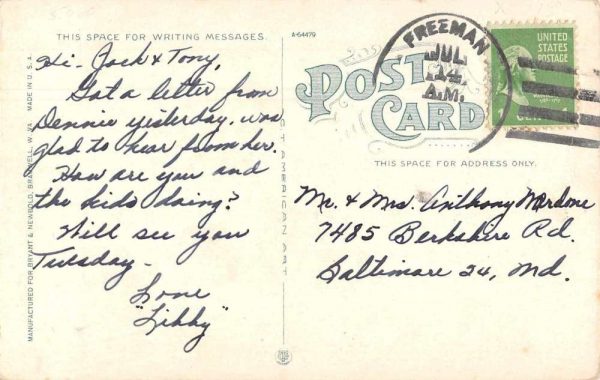 THIS SPACE FOR WRITING MESSAGES.
A-64479
Hi - Jack & Tony,
Got a letter from
Dennie yesterday. was
glad to hear from her.
How are you and
the kids doing?
Will see you
Tuesday -
Love
"Libby"
MANUFACTURED FOR BRYANT & NEWBOLD, BRAMWELL, W. VA. MADE IN U.S.A.
CT. AMERICAN ART
POST
CARD
FREEMAN
JUL
14
A.M.
UNITED
STATES
POSTAGE
THIS SPACE FOR ADDRESS ONLY.
Mr. & Mrs. Anthony
7485 Berkshire Rd.
Baltimore 24, Md.